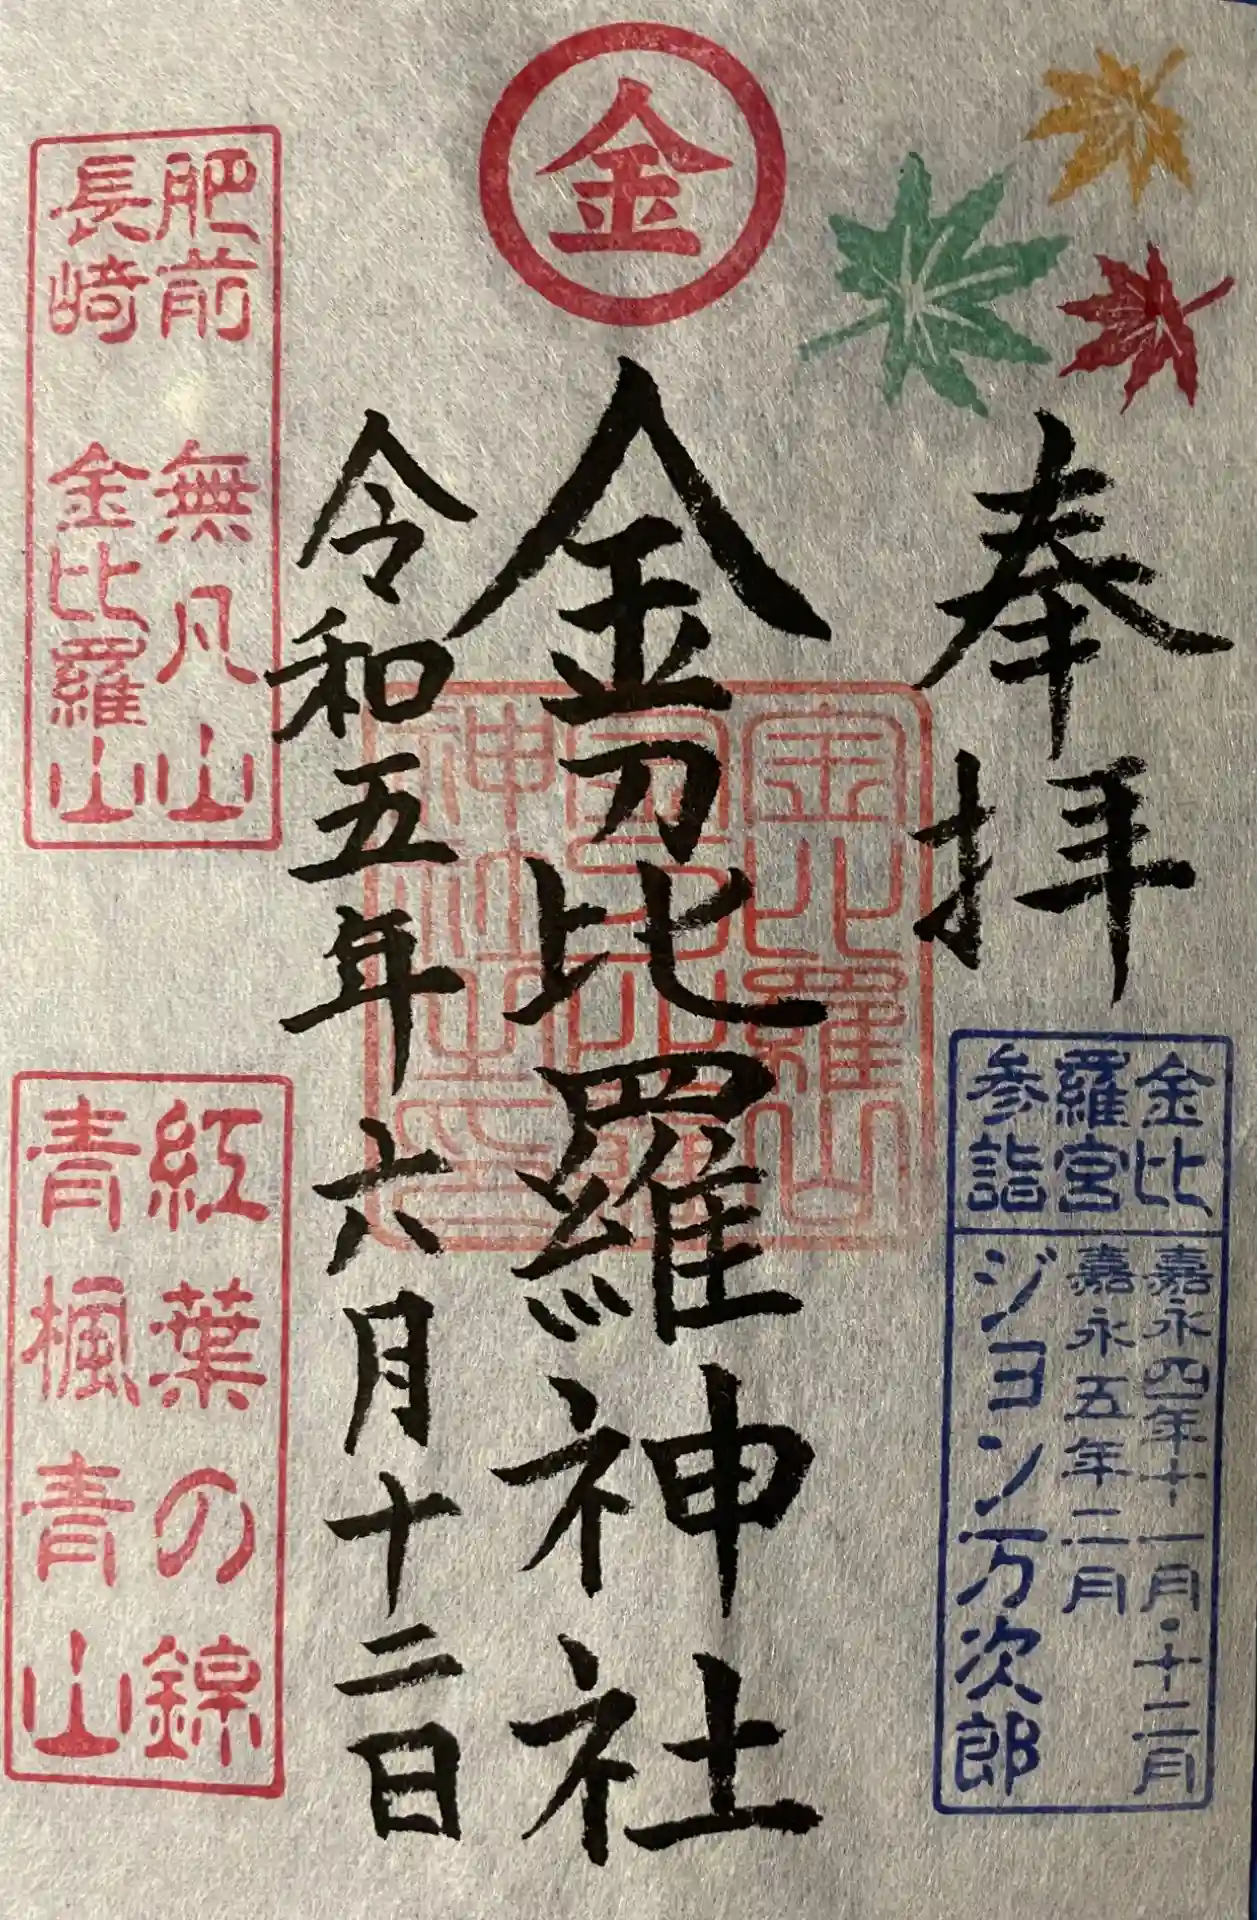 金
奉拝
金刀比羅神社
令和五年六月十二日
金比羅山
神社之印
肥前 無凡山
長崎 金比羅山
紅葉の錦
青楓青山
金比
羅宮
参詣
嘉永四年十一月・十二月
嘉永五年二月
ジョン万次郎